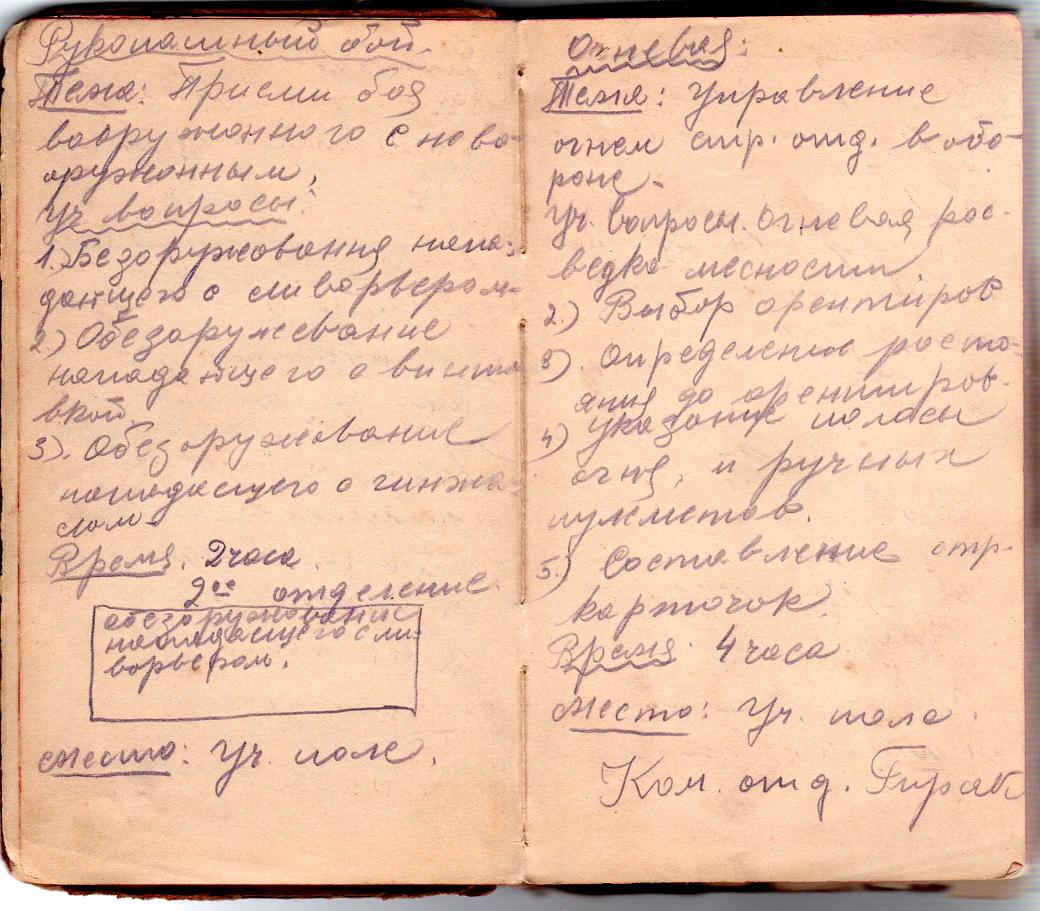 Рукопашный бой.
Тема: Приеми боя
вооружонного с нево-
оружонным,
Уч вопросы:
1.) Безоружования напа-
дающего с ливорьвером-
2.) Обезоружевание
нападающего с винто
вкой
3). Обезоружování
нападающего с кинжа
лом-
Время. 2 часа
2ое отделение
обезоружование
нападающего с ли-
ворьвером.
Место: Уч. поле.
Огневая:
Тема: Управление
огнем стр. отд. в обо-
роне-
Уч. вопросы. Огневая рос-
ведка месности.
2.) Выбор орентиров
3). Определение росто-
яния до орентиров.
4) Указание поласы
огня, и ручных
пулеметов.
5.) Составление стр-
карточок
Время. 4 часа
Место: Уч. поле.
Ком. отд. Гирак